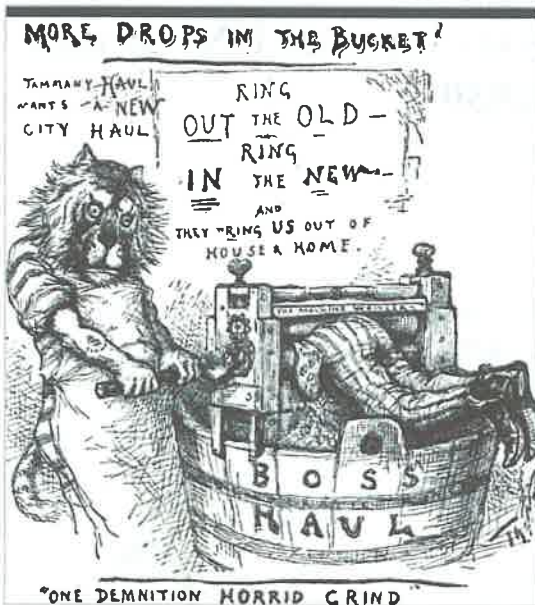 MORE DROPS IN THE BUCKET!
TAMMANY HAUL
WANTS A NEW
CITY HAUL
RING
OUT THE OLD —
RING
IN THE NEW —
AND
THEY "RING US OUT OF
HOUSE & HOME.
THE MACHINE WRINGER
BOSS
HAUL
"ONE DEMNITION HORRID GRIND"